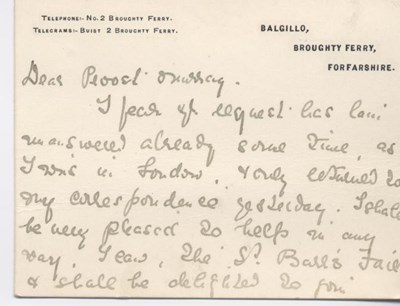 TELEPHONE:- No. 2 BROUGHTY FERRY.
TELEGRAMS:- BUIST 2 BROUGHTY FERRY.
BALGILLO,
BROUGHTY FERRY,
FORFARSHIRE.
Dear Provost Murray.
I fear yr request has lain
unanswered already some time, as
I was in London, & only returned to
my correspondence yesterday. I shall
be very pleased to help in any
way I can, the St. Fair
& shall be delighted to join